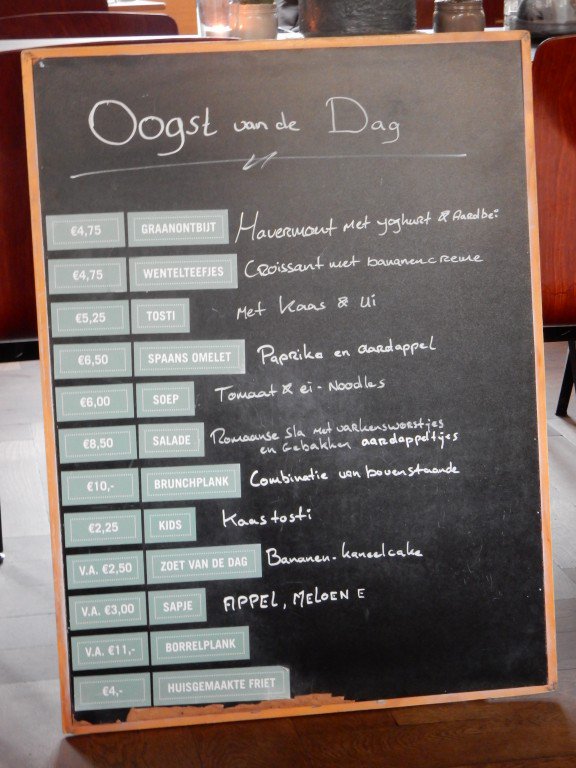 Oogst van de Dag
€4,75 GRAANONTBIJT Havermout met yoghurt & Aardbei
€4,75 WENTELTEEFJES Croissant met bananencreme
€5,25 TOSTI Met Kaas & Ui
€6,50 SPAANS OMELET Paprika en aardappel
€6,00 SOEP Tomaat & ei-Noodles
€8,50 SALADE Romaanse sla met varkensworstjes
en Gebakken aardappeltjes
€10,- BRUNCHPLANK Combinatie van bovenstaande
€2,25 KIDS Kaastosti
V.A. €2,50 ZOET VAN DE DAG Bananen-kaneelcake
V.A. €3,00 SAPJE APPEL, MELOEN E
V.A. €11,- BORRELPLANK
€4,- HUISGEMAAKTE FRIET